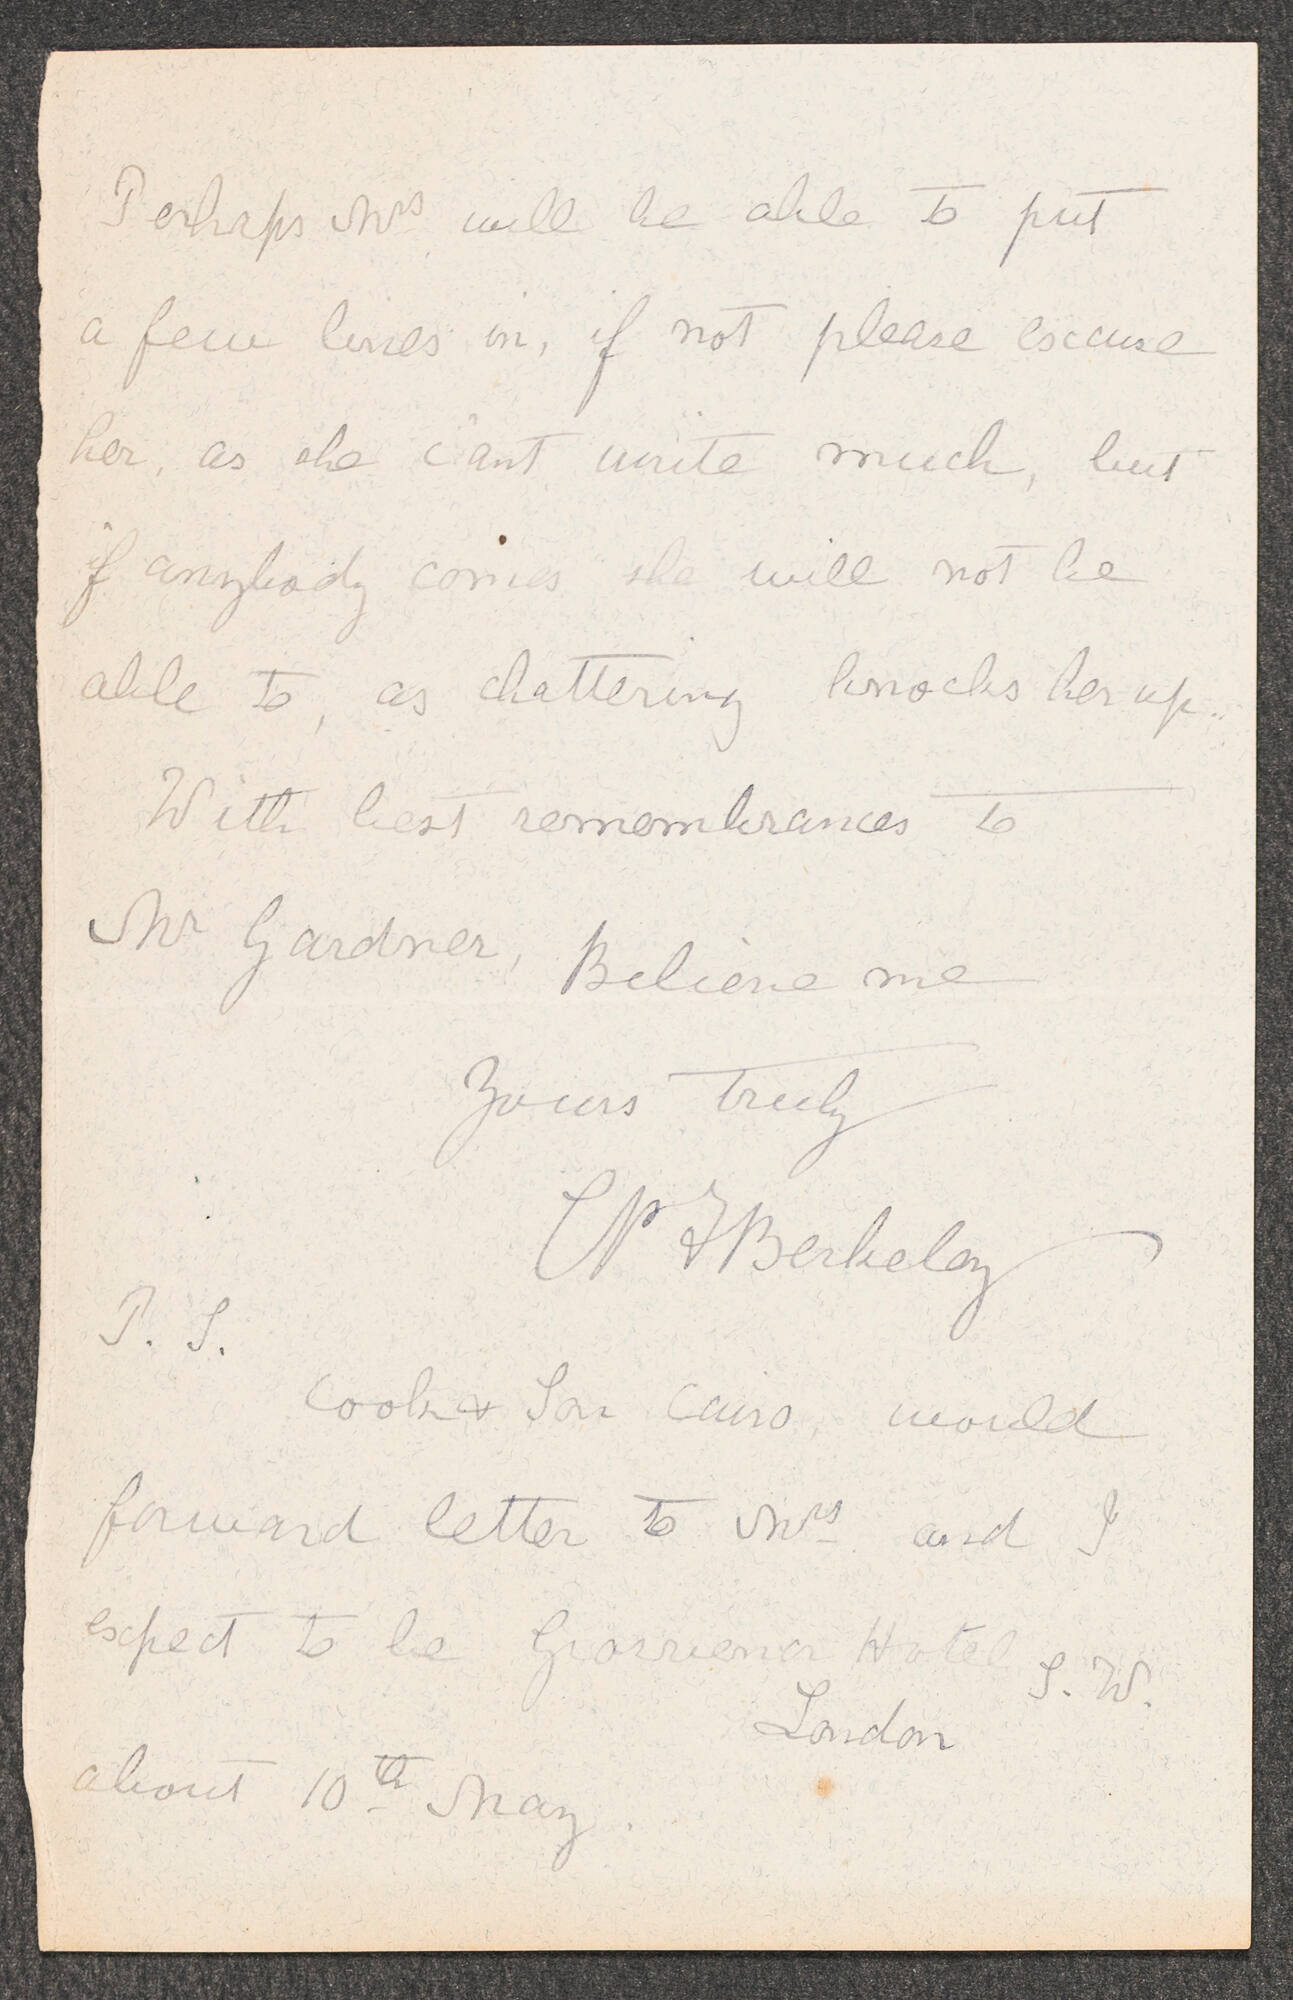 Perhaps Mrs. will be able to put
a few lines in, if not please excuse
her, as she can't write much, but
if anybody comes she will not be
able to, as chattering knocks her up.
With best remembrances to
Mr Gardner, Believe me
Yours truly
Berkeley
P. S.
Cook & Son Cairo, would
forward letter to Mrs. and I
expect to be Grosvenor Hotel S. W.
London
about 10th May.